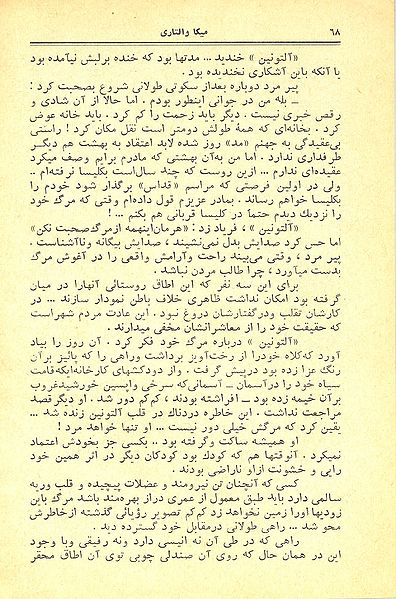 ۶۸
میکا والتاری
«آلتونین » خندید ... مدتها بود که خنده برلبش نیامده بود
یا آنکه باین آشکاری نخندیده بود .
پیر مرد دوباره بعداز سکوتی طولانی شروع بصحبت کرد :
ــ بله من در جوانی اینطور بودم . اما حالا از آن شادی و
رقص خبری نیست . دیگر باید زحمت را کم کرد . باید خانه عوض
کرد . بخانه‌ای که همهٔ طولش دومتر است نقل مکان کرد ! راستی
بی‌عقیدگی به جهنم «مد» روز شده لابد اعتقاد به بهشت هم دیگر
طرفداری ندارد . اما من به‌آن بهشتی که مادرم برایم وصف میکرد
عقیده‌ای ندارم ... ازین روست که چند سال‌است بکلیسا نرفته‌ام ..
ولی در اولین فرصتی که مراسم «قداس» برگذار شود خودم را
بکلیسا خواهم رساند . بمادر عزیزم قول داده‌ام وقتی که مرگ خود
را نزدیك دیدم حتما در کلیسا قربانی هم بکنم ... !
«آلتونین » ، فریاد زد : «هرمان‌اینهمه ازمرگ‌صحبت نکن»
اما حس کرد صدایش بدل نمی‌نشیند ، صدایش بیگانه وناآشناست .
پیر مرد ، وقتی می‌بیند راحت وآرامش واقعی را در آغوش مرگ
بدست میآورد ، چرا طالب مردن نباشد .
برای این سه نفر که این اطاق روستائی آنهارا در میان
گرفته بود امکان نداشت ظاهری خلاف باطن نمودار سازند ... در
کارشان تقلب ودرگفتارشان دروغ نبود . این عادت مردم شهراست
که حقیقت خود را از معاشرانشان مخفی میدارند .
«آلتونین » درباره مرگ خود فکر کرد . آن روز را بیاد
آورد که‌کلاه خودرا از رخت‌آویز برداشت وراهی را که پائیز برآن
رنگ عزا زده بود درپیش گرفت . واز دودکشهای کارخانه‌ایکه‌قامت
سیاه خود رادرآسمان ــ آسمانی‌که سرخی واپسین خورشیدغروب
برآن خیمه زده بود ــ افراشته بودند ، کم‌کم دور شد . او دیگرقصد
مراجعت نداشت . این خاطره دردناك در قلب آلتونین زنده شد ...
یقین کرد که مرگش خیلی دور نیست ... او تنها خواهد مرد !
او همیشه ساکت وگرفته بود .. بکسی جز بخودش اعتماد
نمیکرد . آنوقتها هم که کودك بود کودکان دیگر در اثر همین خود
رایی و خشونت ازاو ناراضی بودند .
کسی که آنچنان تن نیرومند و عضلات پیچیده و قلب وریه
سالمی دارد باید طبق معمول از عمری دراز بهره‌مند باشد مرگ باین
زودیها اورا زمین نخواهد زد کم‌کم تصویر رؤیائی گذشته ازخاطرش
محو شد ... راهی طولانی درمقابل خود گسترده دید .
راهی که در طی آن نه انیسی دارد ونه رفیقی وبا وجود
این در همان حال که روی آن صندلی چوبی توی آن اطاق محقر